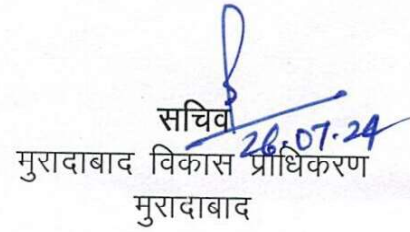 सचिव
26.07.24
मुरादाबाद विकास प्राधिकरण
मुरादाबाद